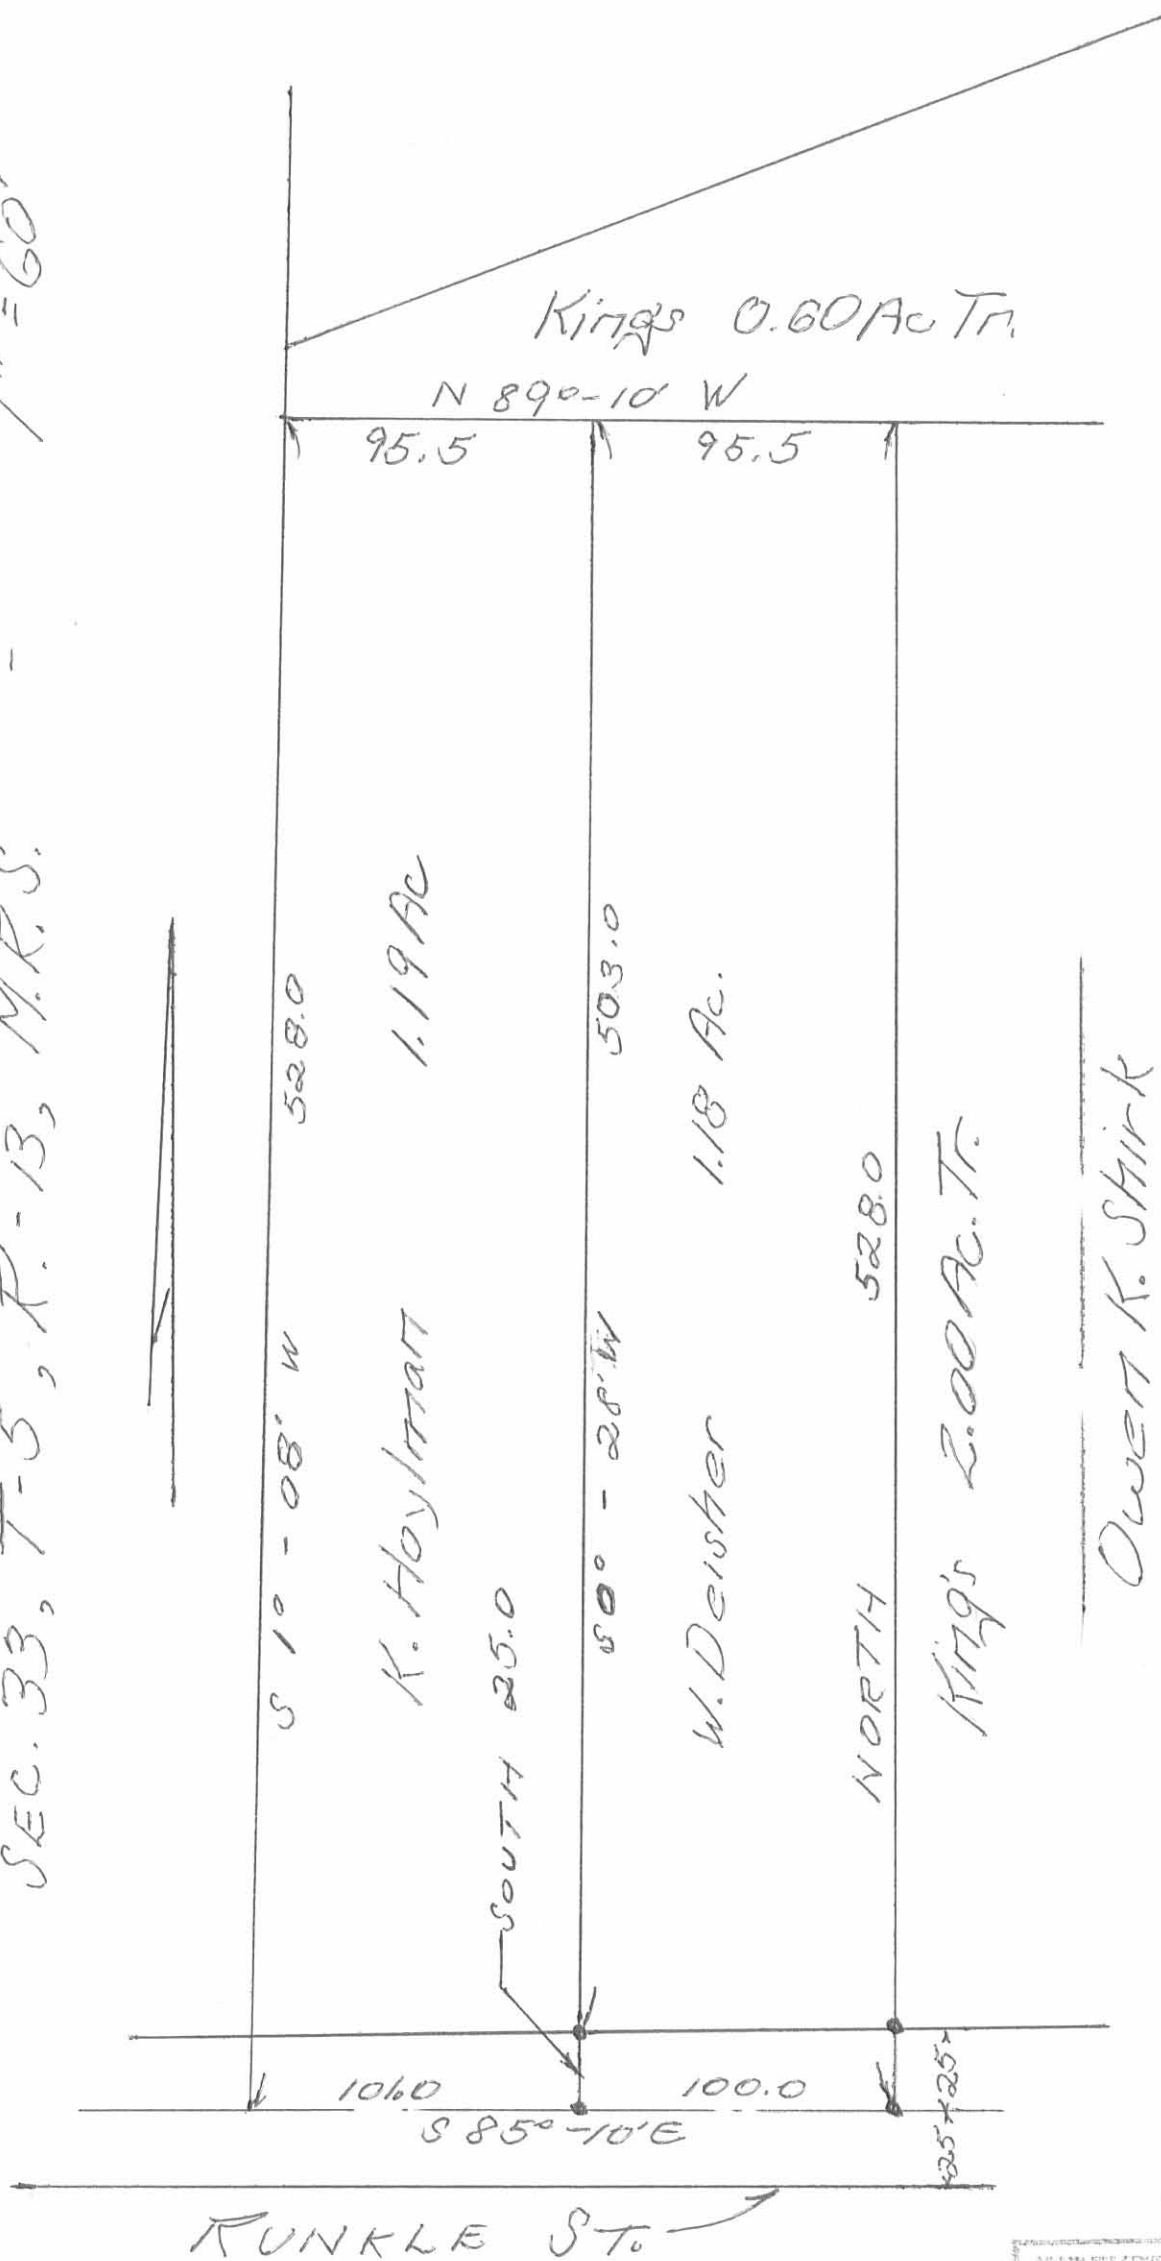 SEC. 33, T-5, R.-13, M.R.S. - 1" = 60'
Kings 0.60 Ac Tr.
N 89°-10' W
95.5 95.5
S 1° - 08' W 528.0
K. Hoylman 1.19 Ac
SOUTH 25.0
S 0° - 28' W 503.0
W. Deisher 1.18 Ac.
NORTH 528.0
King's 2.00 Ac. Tr.
Owen K. Shirk
101.0 100.0
S 85°-10' E
25 25
RUNKLE ST.